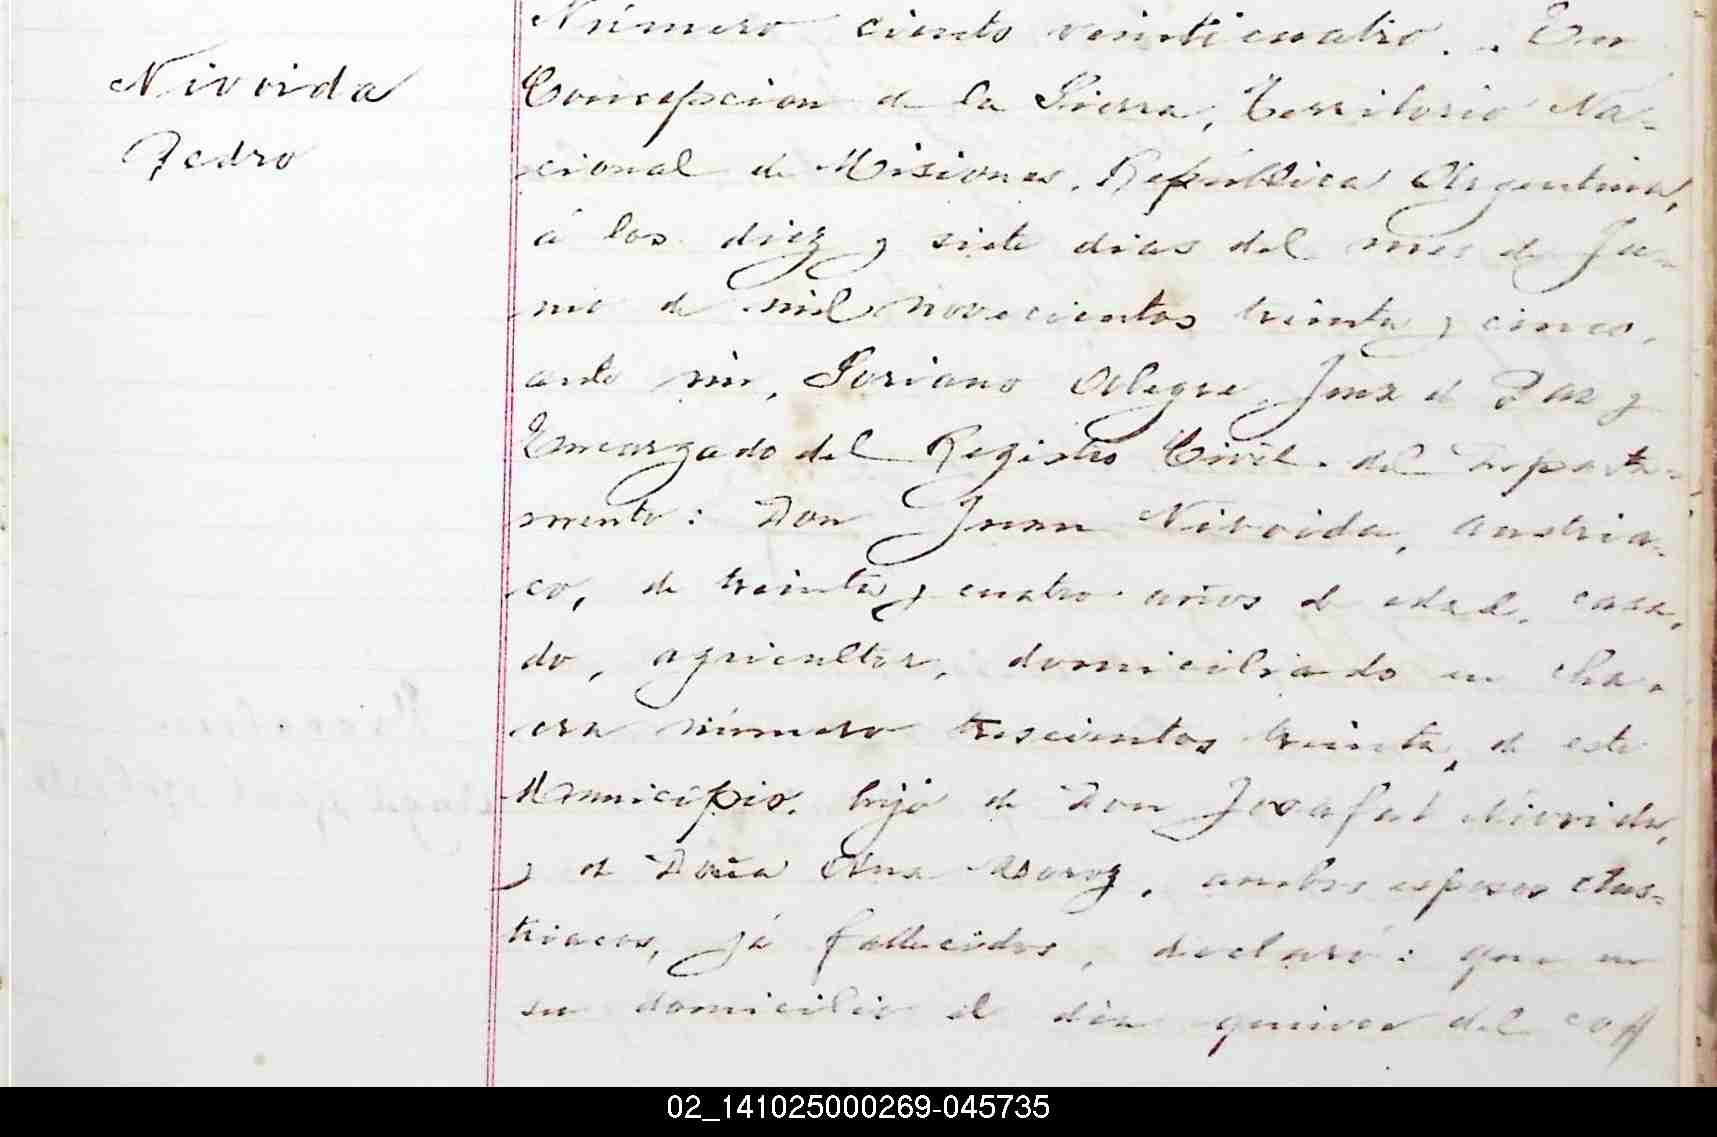 Nivoida
Pedro
Número ciento veinticuatro. . En
Concepcion de la Sierra, Territorio Na-
cional de Misiones, República Argentina,
á los diez y siete dias del mes de Ju-
nio de mil novecientos treinta y cinco,
ante mi, Soriano Alegre Juez de Paz y
Encargado del Registro Civil del Departa-
mento: Don Juan Nivoida, austria-
co, de treinta y cuatro años de edad, casa-
do, agricultor, domiciliado en cha-
cra número trescientos treinta, de este
Municipio, hijo de Don Josafat Nivoida,
y de Doña Ana, ambos esposos Aus-
triacos, yá fallecidos, declaró: que en
su domicilio el dia quince del
02_141025000269-045735